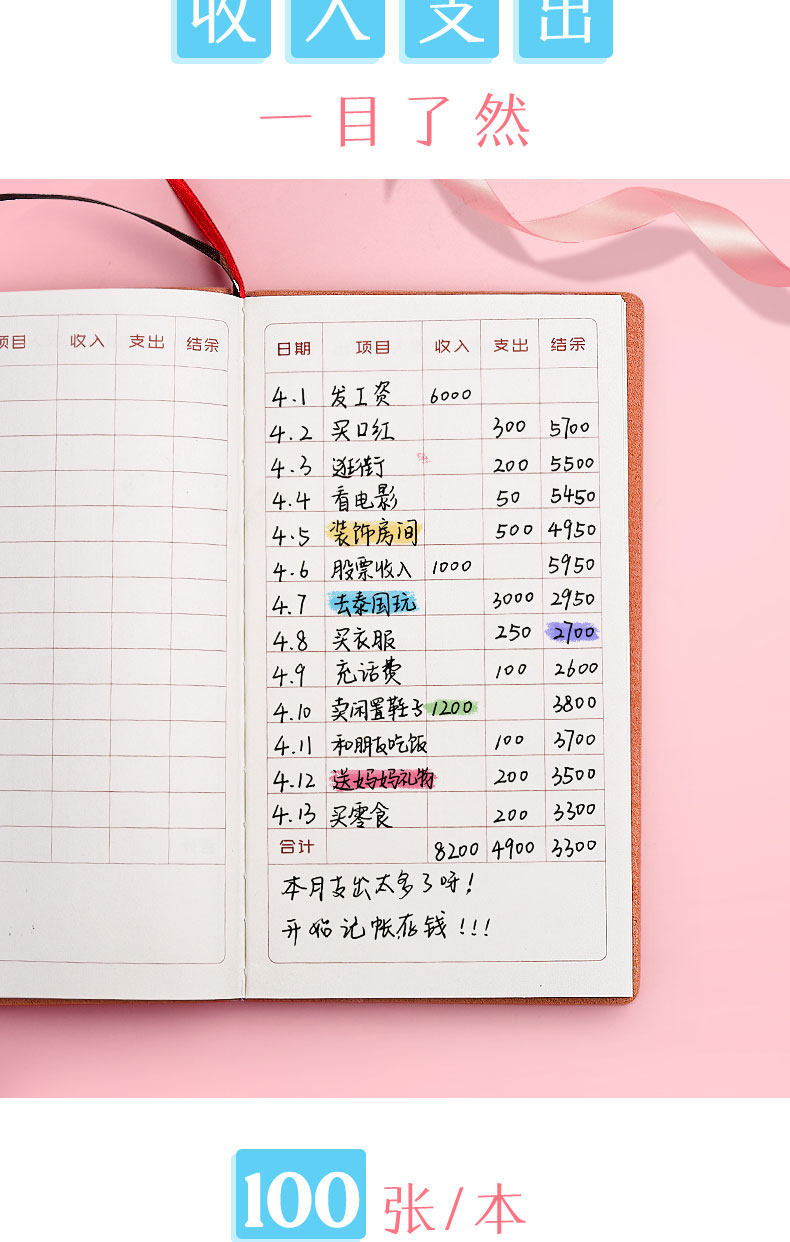 收入支出
一目了然
项目 收入 支出 结余
日期 项目 收入 支出 结余
4.1 发工资 6000
4.2 买口红 300 5700
4.3 逛街 200 5500
4.4 看电影 50 5450
4.5 装饰房间 500 4950
4.6 股票收入 1000 5950
4.7 去泰国玩 3000 2950
4.8 买衣服 250 2700
4.9 充话费 100 2600
4.10 卖闲置鞋子 1200 3800
4.11 和朋友吃饭 100 3700
4.12 送妈妈礼物 200 3500
4.13 买零食 200 3300
合计 8200 4900 3300
本月支出太多了呀!
开始记帐存钱!!!
100张/本